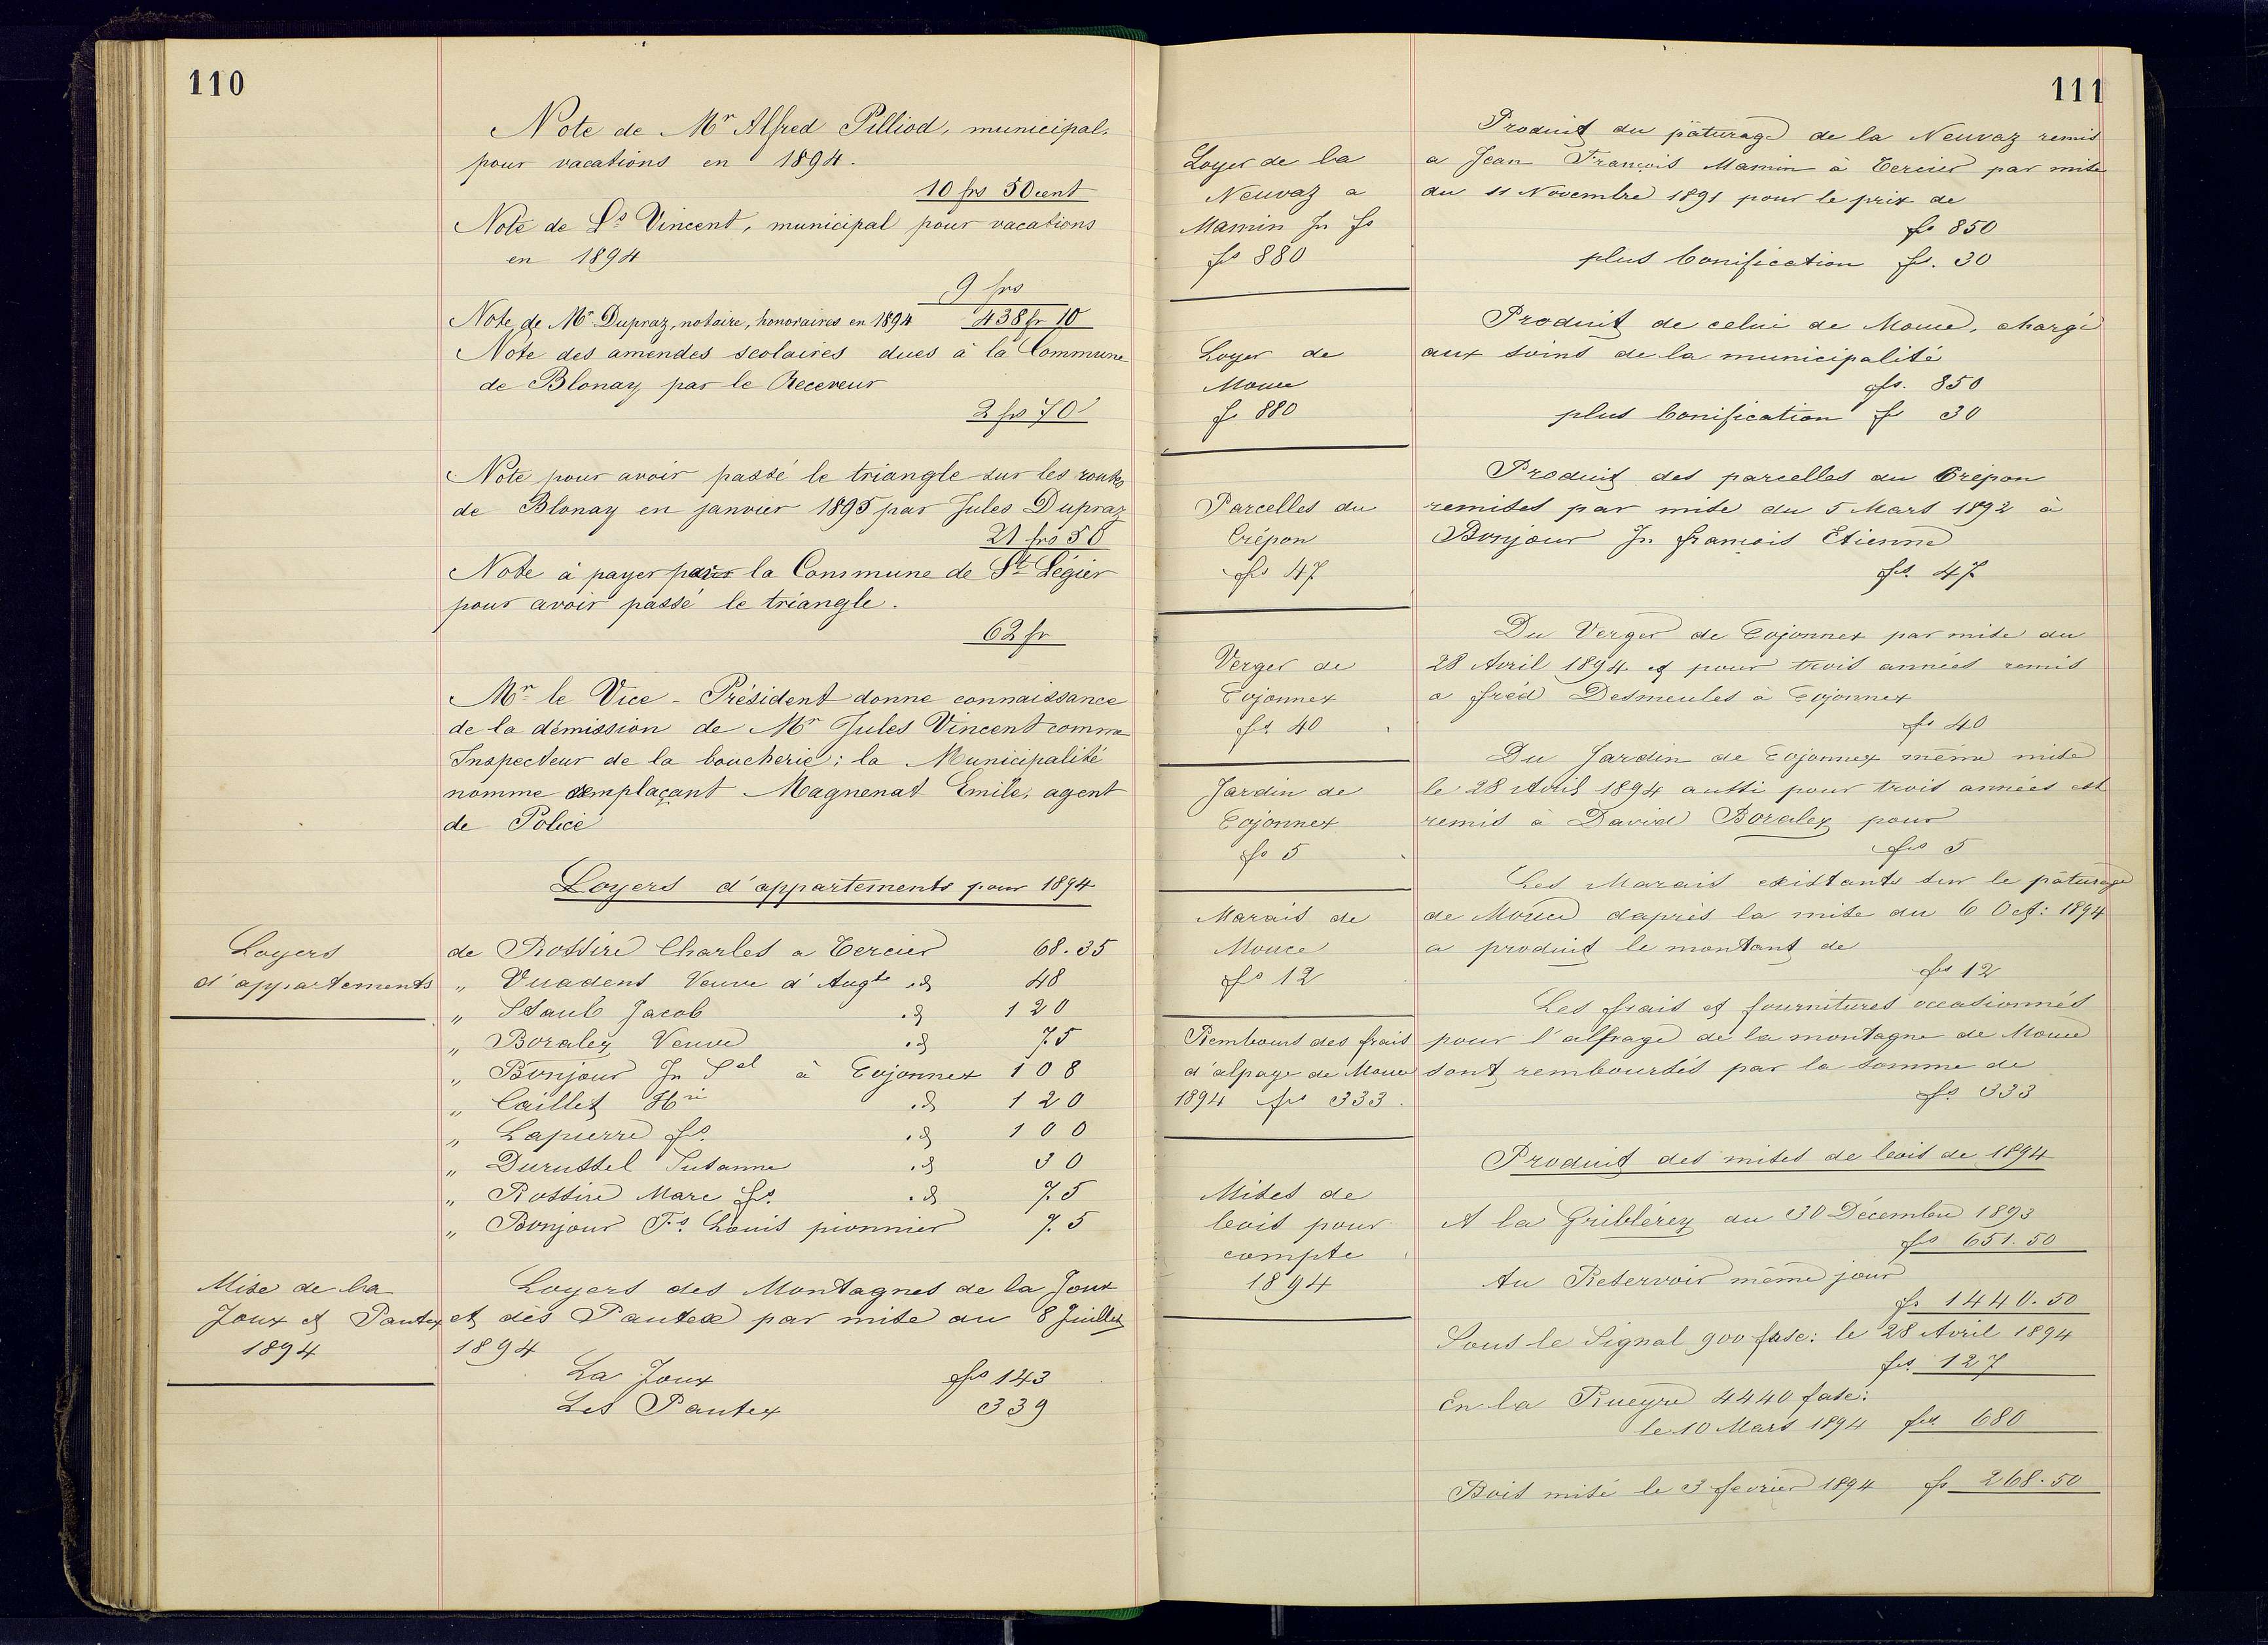 110
Note de Mr Alfred Pilliod, municipal,
pour vacations en 1894.
10 frs 50 cent
Note de Ls Vincent, municipal pour vacations
en 1894
9 frs
Note de Mr Dupraz, notaire, honoraires en 1894 438 fr 10
Note des amendes scolaires dues à la Commune
de Blonay par le Receveur
2 frs 70
Note pour avoir passé le triangle sur les routes
de Blonay en janvier 1895 par Jules Dupraz
21 frs 50
Note à payer par la Commune de St Légier
pour avoir passé le triangle.
62 fr
Mr le Vice-Président donne connaissance
de la démission de Mr Jules Vincent comme
Inspecteur de la boucherie; la Municipalité
nomme remplaçant Magnenat Emile, agent
de Police
Loyers d'appartements pour 1894
Loyers
d'appartements
de Rossire Charles a Tercier 68.35
" Vuadens Veuve d'Augte id 48
" Staub Jacob id 120
" Boraley Veuve id 75
" Bonjour Jn Sel à Cojonnex 108
" Caillet Hri id 120
" Lapierre fs id 100
" Durussel Susanne id 30
" Rossire Marc fs id 75
" Bonjour Fs Louis pionnier 75
Mise de la
Joux et Pautex
1894
Loyers des Montagnes de la Joux
et dès Pautex par mise du 8 Juillet
1894
La Joux frs 143
Les Pautex 339
111
Loyer de la
Neuvaz a
Mamin Jn fs
frs 880
Produit du pâturage de la Neuvaz remis
a Jean François Mamin à Tercier par mise
du 11 Novembre 1891 pour le prix de
frs 850
plus bonification fr. 30
Loyer de
Mouce
fr 880
Produit de celui de Mouce, chargé
aux soins de la municipalité
frs. 850
plus bonification fr 30
Parcelles du
Crépon
frs 47
Produit des parcelles du Crépon
remises par mise du 5 Mars 1892 à
Bonjour Jn françois Etienne
frs. 47
Verger de
Cojonnex
frs 40
Du Verger de Cojonnex par mise du
28 Avril 1894 et pour trois années remis
a fréd Desmeules à Cojonnex
frs 40
Jardin de
Cojonnex
frs 5
Du Jardin de Cojonnex même mise
le 28 Avril 1894 aussi pour trois années est
remis à David Boraley pour
frs 5
Marais de
Mouce
frs 12
Les Marais existants sur le pâturage
de Mouce daprès la mise du 6 Oct: 1894
a produit le montant de
frs 12
Rembours des frais
d'alpage de Mouce
1894 frs 333.
Les frais et fournitures occasionnés
pour l'alpage de la montagne de Mouce
sont remboursés par la somme de
frs 333
Produit des mises de bois de 1894
Mises de
bois pour
compte
1894
A la Griblérey du 30 Décembre 1893
frs 651.50
Au Réservoir même jour
fr 1440.50
Sous le Signal 900 fasc: le 28 Avril 1894
frs. 127
En la Rueyre 4440 fasc:
le 10 Mars 1894 frs. 680
Bois misé le 3 fevrier 1894 frs 268.50